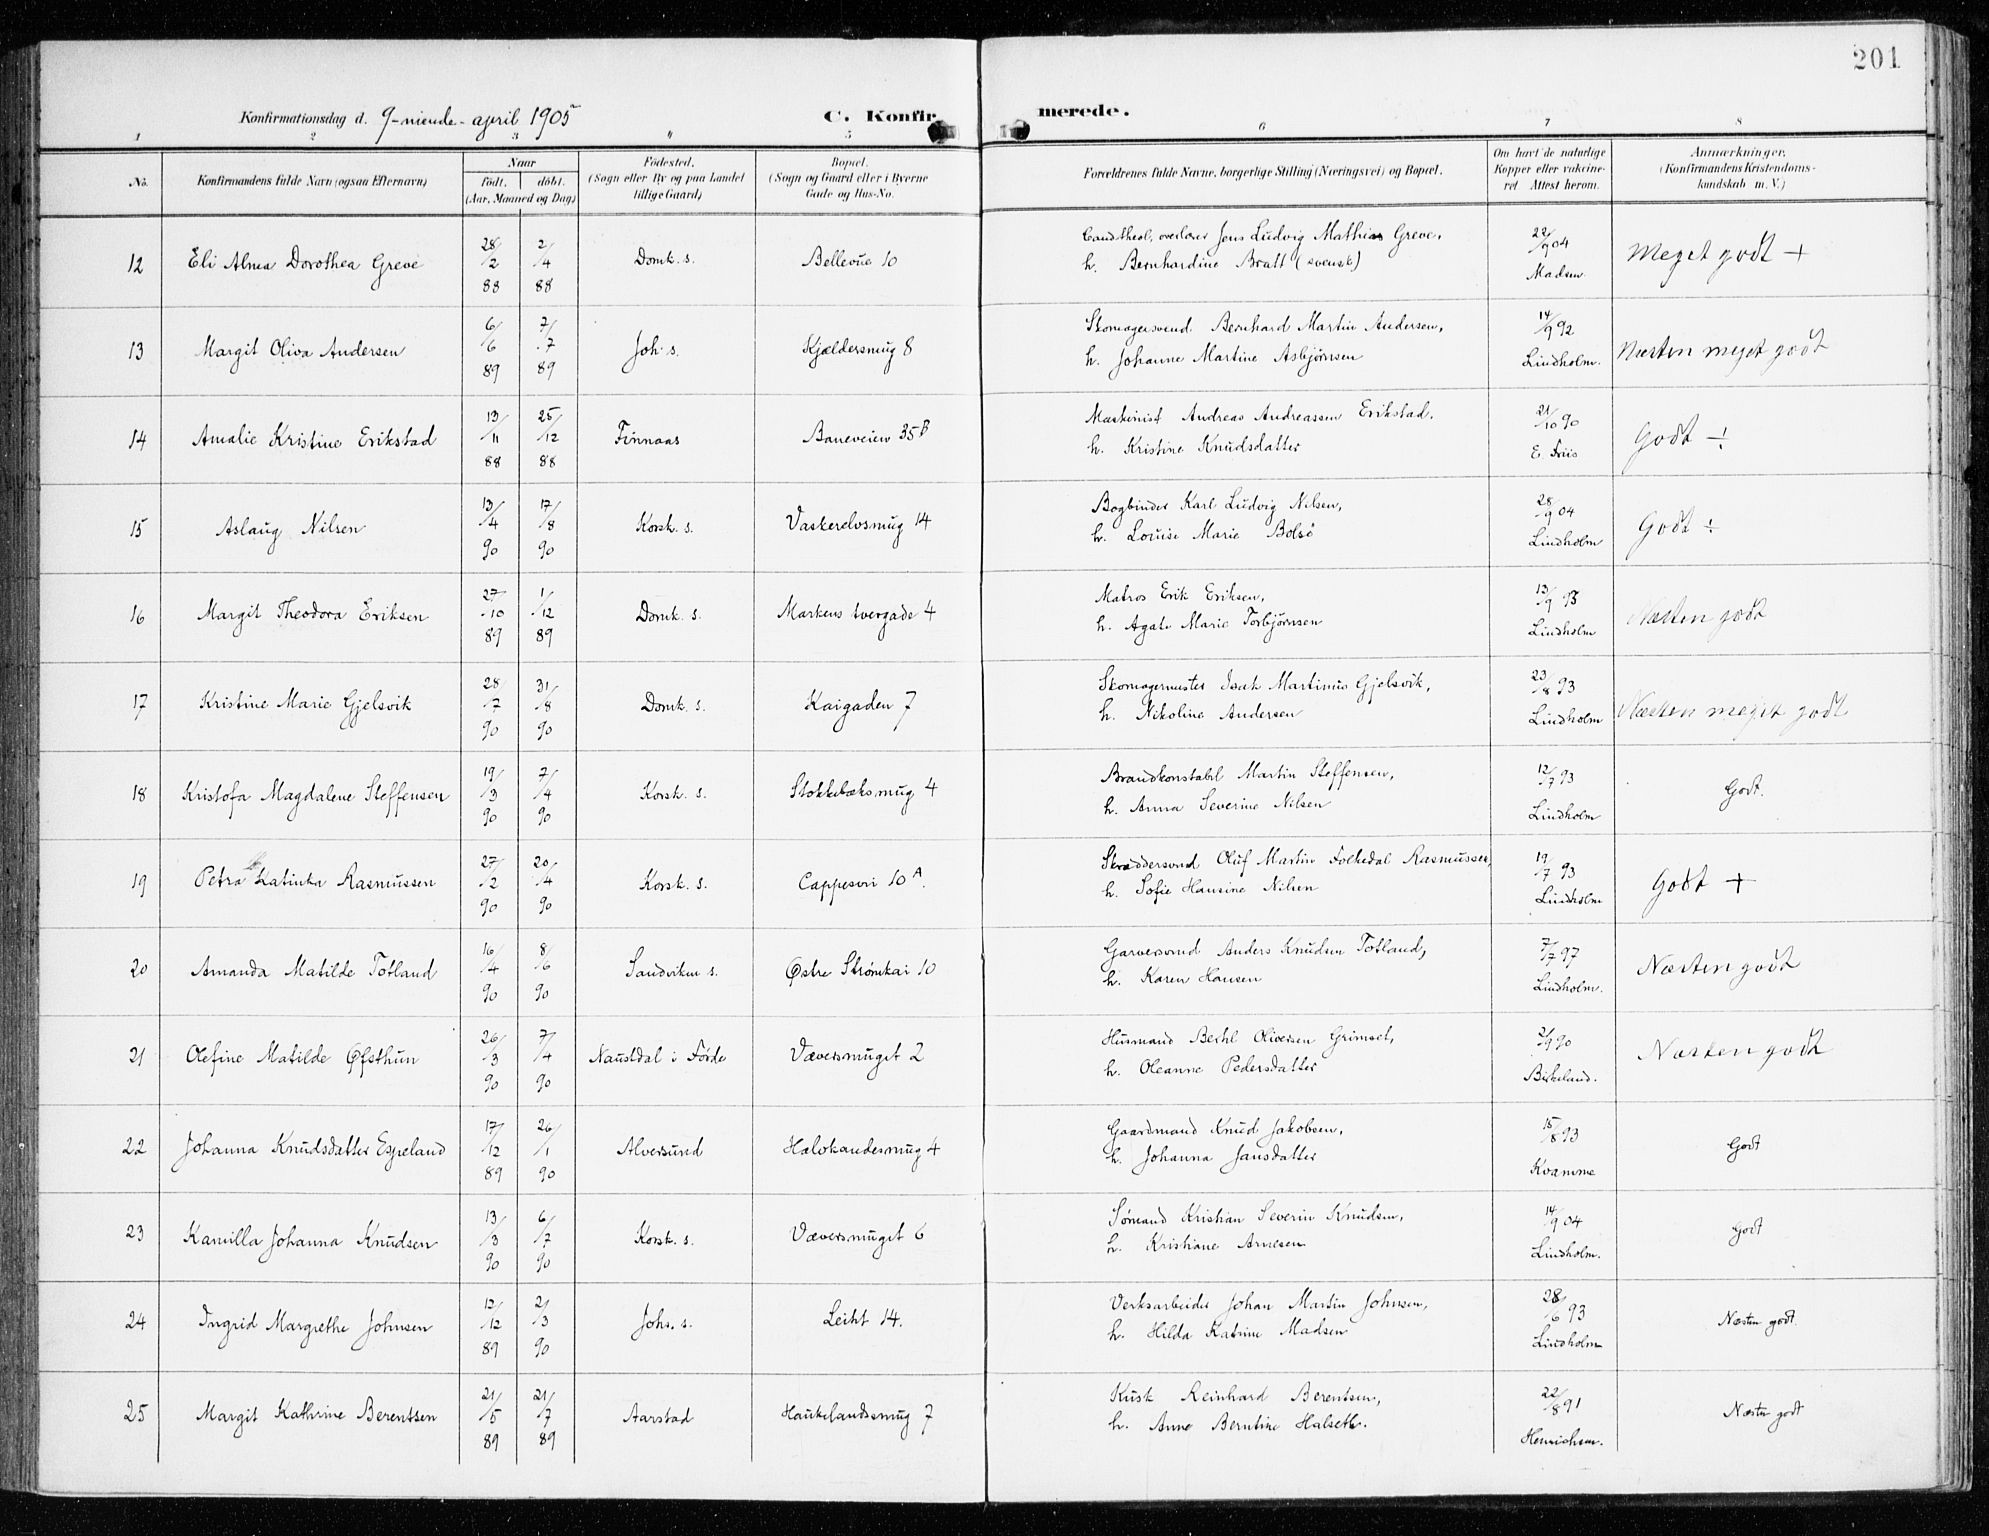 201
Konfirmationsdag d. 9-niende-april 1905
C. Konfirmerede.
1 2 3 " 5 6 7 8
No.
Konfirmandens fulde Navn (ogsaa Efternavn)
Naar
født. døbt.
(Aar, Maaned og Dag)
Fødested.
(Sogn eller By og paa Landet
tillige Gaard)
Bopæl.
(Sogn og Gaard eller i Byerne
Gade og Hus-No.
Forældrenes fulde Navne, borgerlige Stilling (Næringsvei) og Bopæl.
Om havt de naturlige
Kopper eller vakcine-
ret Attest herom.
Anmærkninger.
(Konfirmandens Kristendoms-
kundskab m. V.)
12 Eli Alma Dorothea Greve 28/2 88 2/4 88 Domk. s. Bellevue 10
Cand. theol., overlærer Jens Ludvig Mathias Greve,
h. Bernhardine Bratt (svensk)
22/9 04 Madsen Meget godt +
13 Margit Oliva Andersen 6/6 89 7/7 89 Joh. s. Kjældersmug 8
Skomagersvend Bernhard Martin Andersen,
h. Johanne Martine Asbjørnsen
14/9 92 Lindholm. Næsten meget godt
14 Amalie Kristine Erikstad 13/11 88 25/12 88 Finnaas Baneveien 35 B
Maskinist Andreas Andreassen Erikstad.
h. Kristine Knudsdatter
21/10 90 E. Friis Godt ÷
15 Aslaug Nilsen 13/4 90 17/8 90 Korsk. s. Vaskerelvsmug 14
Bogbinder Karl Ludvig Nilsen,
h. Louise Marie Bolsø
28/9 04 Lindholm Godt ÷
16 Margit Theodora Eriksen 27/10 89 1/12 89 Domk. s. Markens tvergade 4
Matros Erik Eriksen,
h. Agate Marie Torbjørnsen
13/9 93 Lindholm Næsten godt
17 Kristine Marie Gjelsvik 28/7 90 31/8 90 Domk. s. Kaigaden 7
Skomagermester Isak Martinus Gjelsvik,
h. Nikoline Andersen
23/8 93 Lindholm Næsten meget godt
18 Kristofa Magdalene Steffensen 19/3 90 7/4 90 Korsk. s. Stokkebæksmug 4
Brandkonstabel Martin Steffensen,
h. Anna Severine Nilsen
12/7 93 Lindholm Godt.
19 Petra Katinka Rasmussen 27/2 90 20/4 90 Korsk. s. Cappesvei 10 A.
Skræddersvend Oluf Martin Folkedal Rasmussen,
h. Sofie Hansine Nilsen
19/7 93 Lindholm Godt +
20 Amanda Matilde Totland 16/4 90 8/6 90 Sandviken s. Østre Strømkai 10
Garversvend Anders Knudsen Totland,
h. Karen Hansen
7/7 97 Lindholm. Næsten godt
21 Olefine Matilde Øfsthun 26/3 90 7/4 90 Naustdal i Førde Væversmuget 2
Husmand Berhl Oliversen Grimset,
h. Oleanne Pedersdatter
2/9 90 Birkeland. Næsten godt
22 Johanna Knudsdatter Espeland 17/12 89 26/1 90 Alversund Halvkandesmug 4
Gaardmand Knud Jakobsen,
h. Johanna Jansdatter
15/8 93 Kvamme Godt
23 Kamilla Johanna Knudsen 13/3 90 6/7 90 Korsk. s. Væversmuget 6
Sømand Kristian Severin Knudsen,
h. Kristiane Arnesen
14/9 04 Lindholm. Godt
24 Ingrid Margrethe Johnsen 12/12 89 2/3 90 Johs. s. Leitet 14.
Verksarbeider Johan Martin Johnsen,
h. Hilda Katrine Madsen
28/6 93 Lindholm Næsten godt.
25 Margit Kathrine Berentsen 21/5 89 21/7 89 Aarstad Haukelandsmug 7
Kusk Reinhard Berentsen,
h. Anne Berntine Halseth.
22/8 91 Henrichsen. Næsten godt